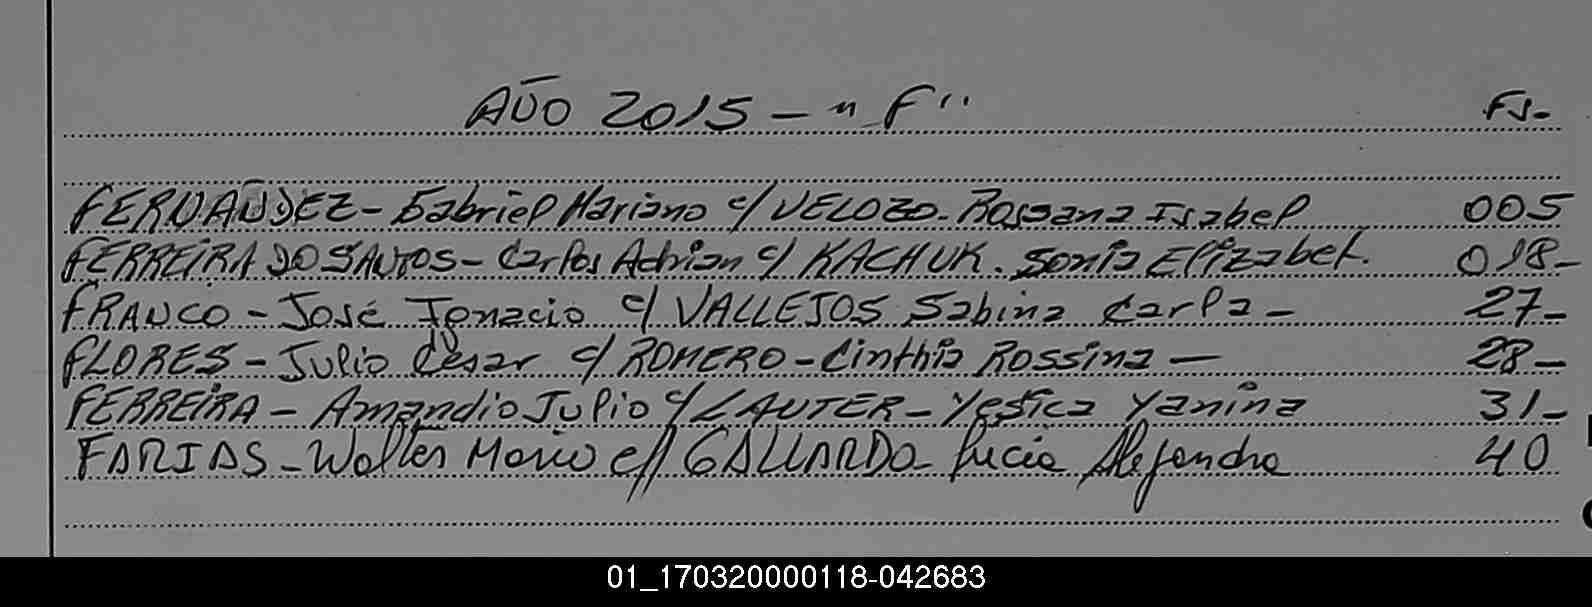 AÑO 2015 - "F" FS.
FERNANDEZ - Gabriel Mariano c/ VELOZO. Rossana Isabel 005
FERREIRA DO SANTOS - Carlos Adrian c/ KACHUK. Sonia Elizabet. 018-
FRANCO - José Ignacio c/ VALLEJOS Sabina Carla - 27-
FLORES - Julio César c/ ROMERO - Cinthia Rossina - 28-
FERREIRA - Amandio Julio c/ LAUTER - Yesica Yanina 31-
FARIAS - Walter Mario c/ GALLARDO - Lucia Alejandra 40
01_170320000118-042683